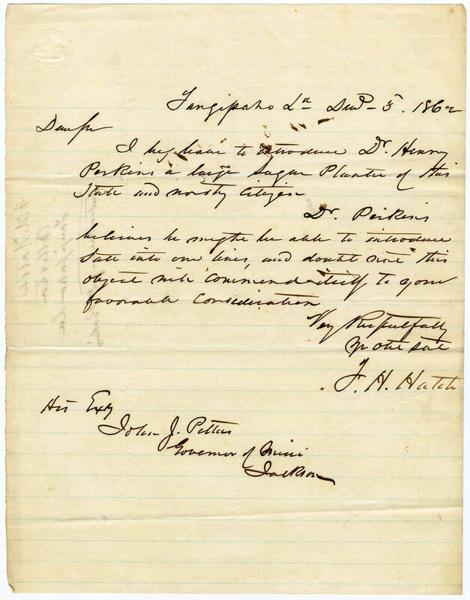 Tangipaho La Decr 5. 1862
Dear Sir
I beg leave to introduce Dr. Henry
Perkins a large Sugar Planter of this
State and worthy Citizen
Dr. Perkins
believes he might be able to introduce
Salt into our lines, and doubt not this
object will commend itself to your
favorable Consideration
Very Respectfully
Yr Obt Svt
F. H. Hatch
His Exly
John J. Pettus
Governor of Missi
Jackson